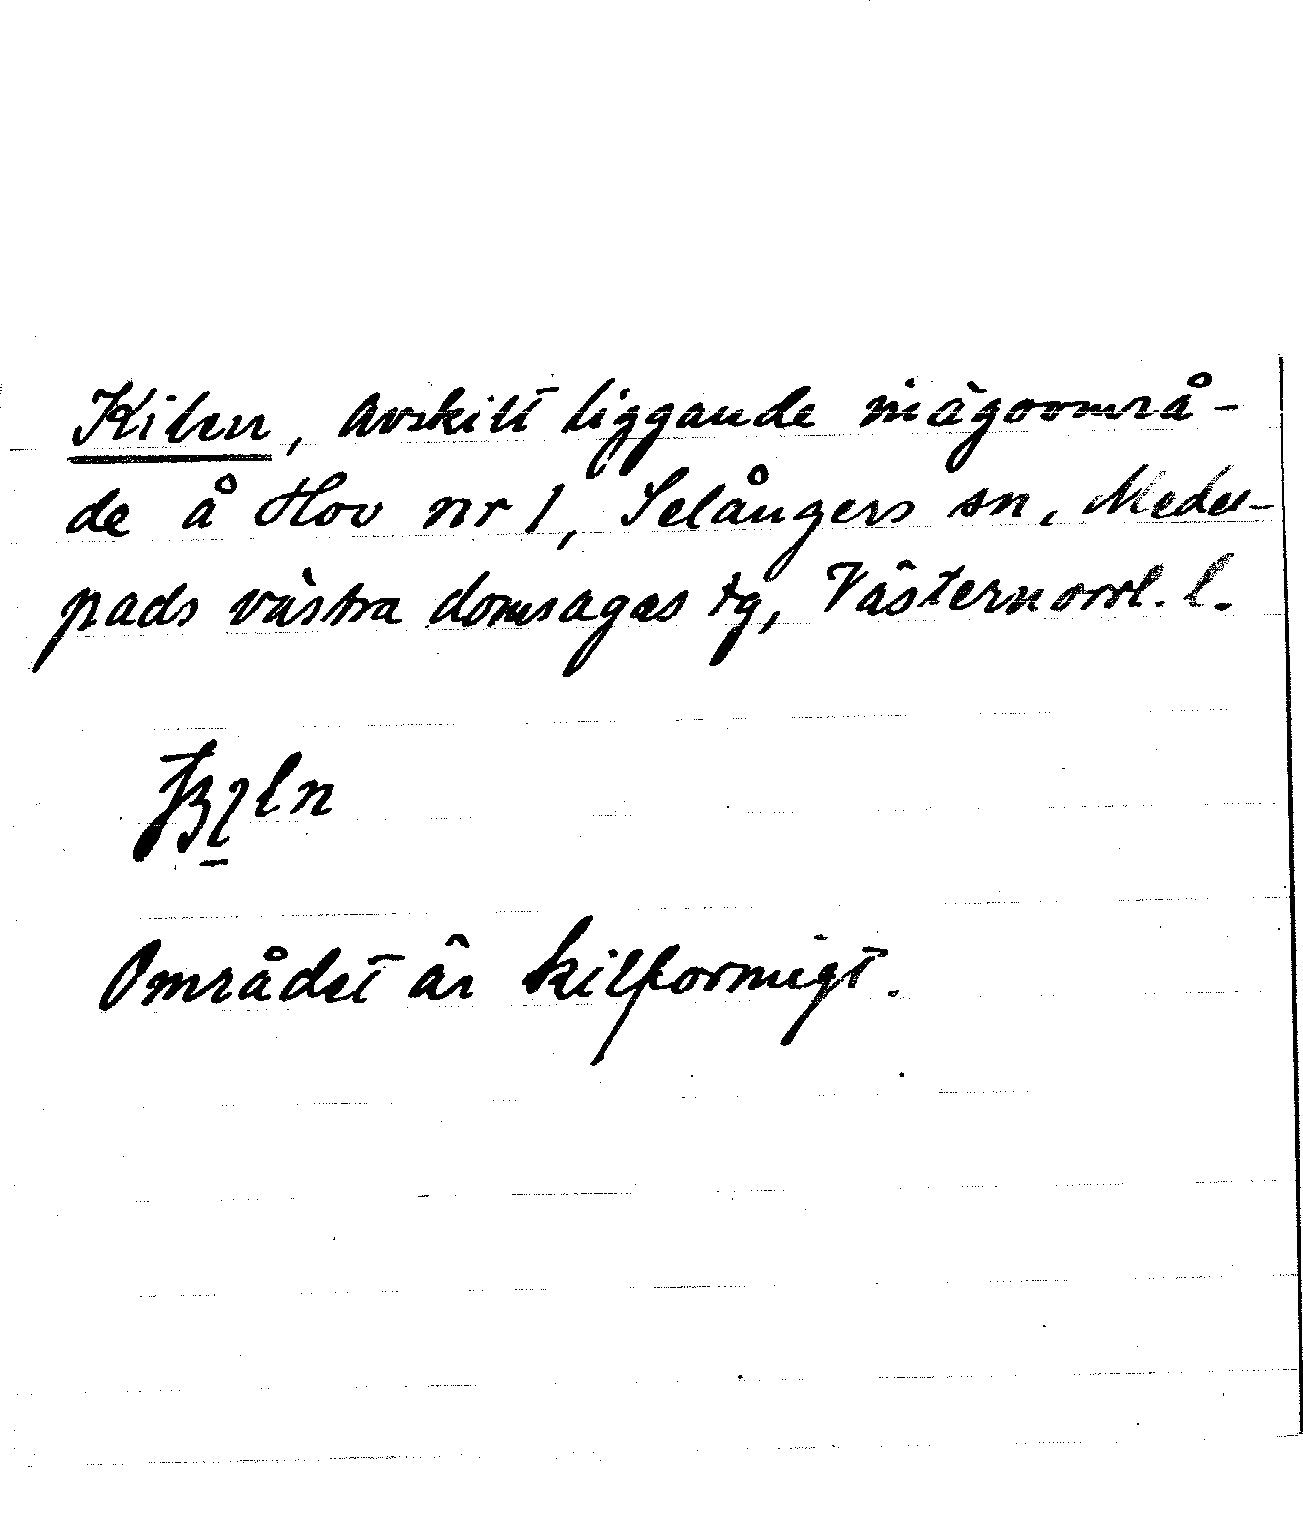 Kilen, avskilt liggande inägoområ-
de å Hov nr 1, Selångers sn, Medel-
pads västra domsagas tg, Västernorrl. l.
Området är kilformigt.